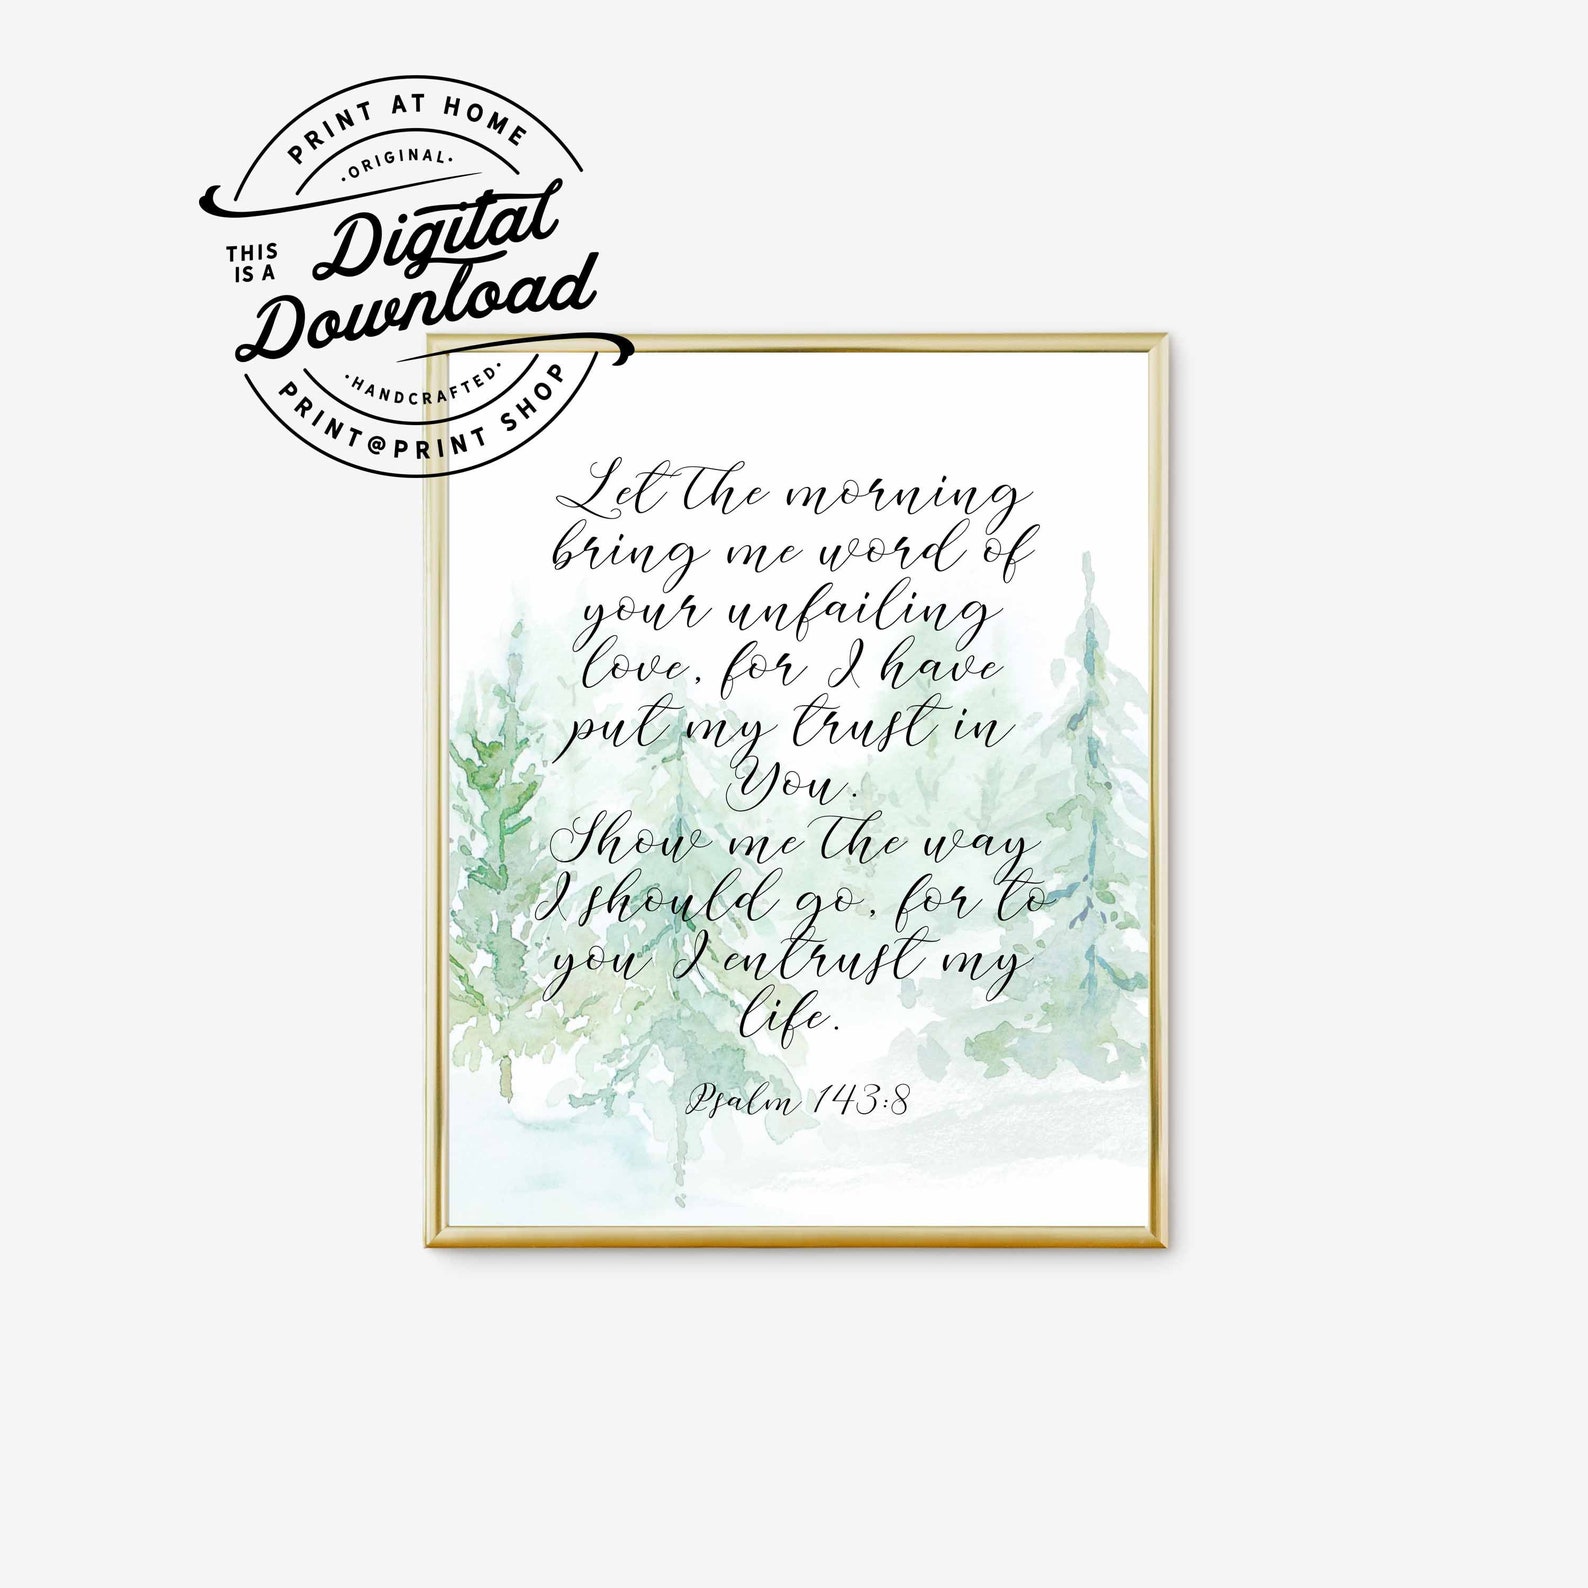 PRINT AT HOME
·ORIGINAL·
THIS
IS A
Digital
Download
·HANDCRAFTED·
PRINT@PRINT SHOP
Let the morning
bring me word of
your unfailing
love, for I have
put my trust in
You.
Show me the way
I should go, for to
you I entrust my
life.
Psalm 143:8